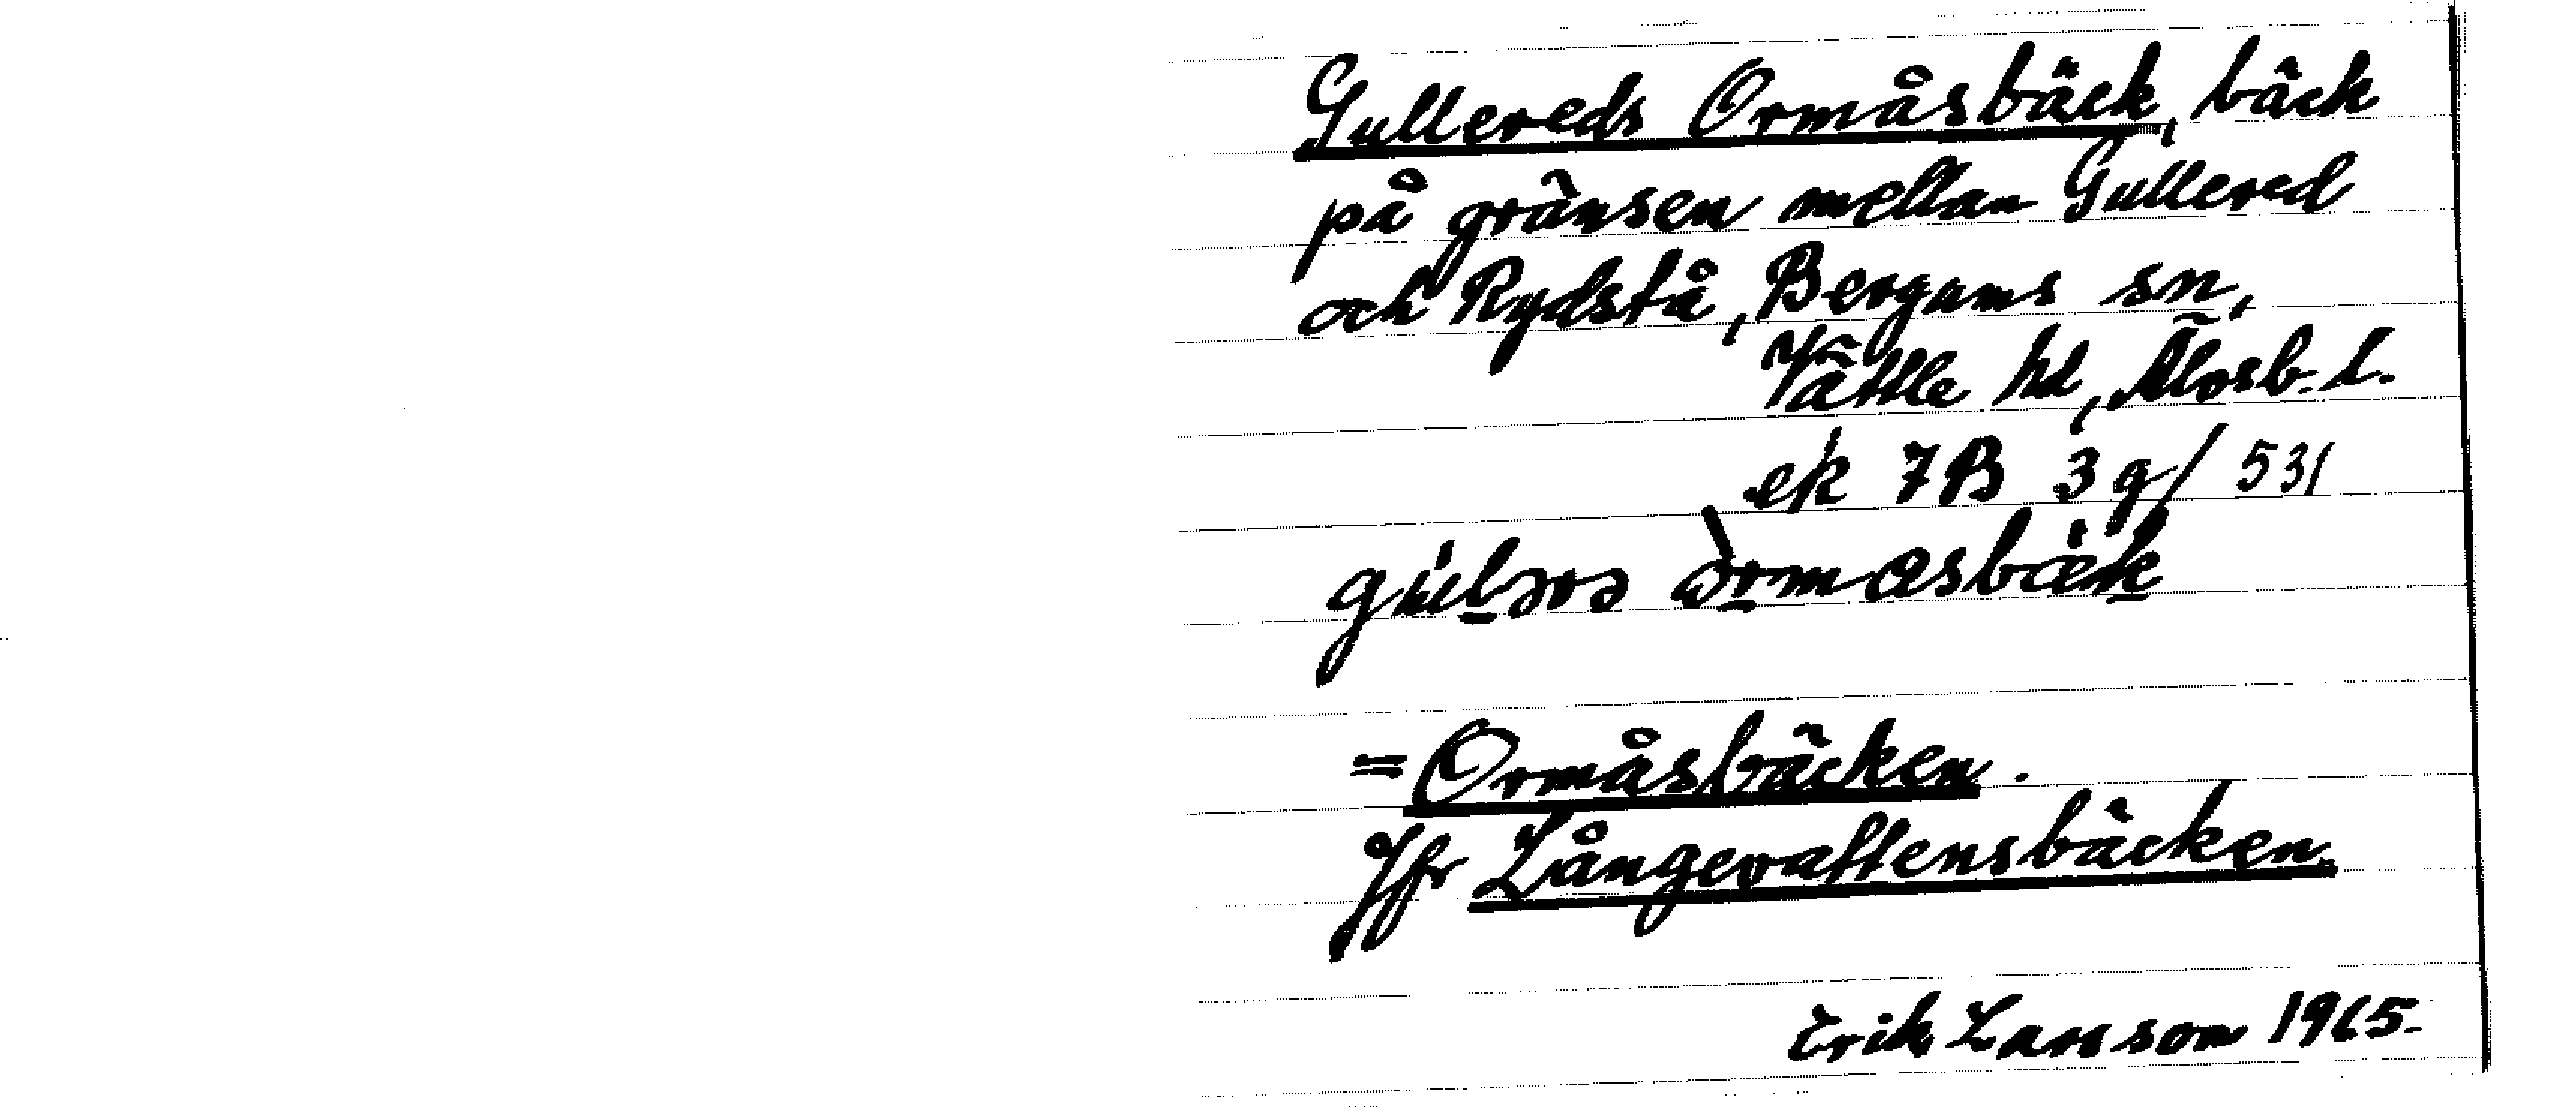 Gullereds Ormåsbäck, bäck
på gränsen mellan Gullered
och Rydstå, Bergums sn,
Vättle hd, Älvsb. l.
ek 7B 3g/531
= Ormåsbäcken.
Jfr Långevattensbäcken.
Erik Larsson 1965.